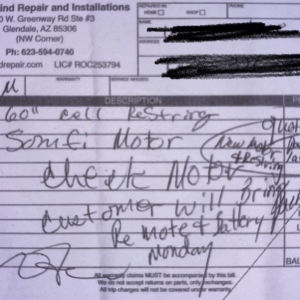 ind Repair and Installations
0 W. Greenway Rd Ste #3
Glendale, AZ 85306
(NW Corner)
Ph: 623-594-0740
drepair.com LIC# ROC253794
REPAIRED IN:
HOME SHOP
NAME
ADDRESS
CITY
PHONE
WARRANTY SERVICE
DESCRIPTION
60" Cell ReString
Somfi Motor
New Motor
& Restring
Check Motor
Customer will Bring
Remote & Battery
Monday
All warranty claims MUST be accompanied by this bill.
We do not accept returns on parts, only exchanges.
All trip charges will not be covered under warranty.
BAL